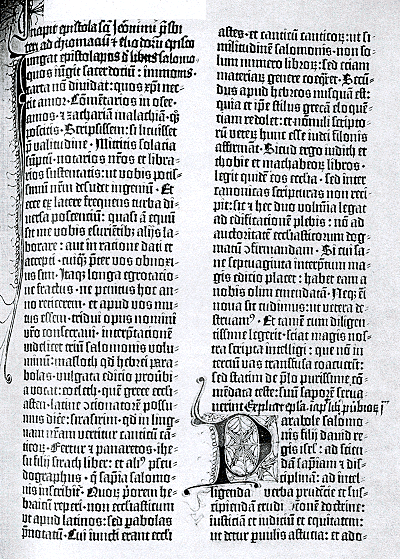 Incipit epistola scī Jeronimi p̄sbi-
teri ad chromaciū ⁊ eliodorū episco
Jungat epistola pos de libris salomo-
quos iūgit sacerdotiū: immo nis.
carta nō diuidat: quos xp̄i nec-
tit amor. Cōmētarios in osee.
amos. ⁊ zachariam malachiā. q̄
poscitis. Scripsissem: si licuisset
p̄ valitudine. Mittitis solacia
sumptuū. notarios nr̄os et libra-
rios sustentatis: ut vobis potis-
simū nr̄m desudet ingeniū. Et
ecce ex latere frequens turba di-
uersa poscentiū: quasi aut equū
sit me vobis esuriētib⁹ alijs la-
borare: aut in ratione dati et
accepti. cuiq̄ p̄ter vos obnoxi-
us sim. Itaq; longa egrotatio-
ne fractus. ne penitus hoc an-
no reticerem. et apud vos mu-
tus essem. tridui opus nomini
vr̄o consecraui. interp̄tationē
videlicet triū salomonis volu-
minū: masloth qd̄ hebrei para-
bolas. vulgata editio prouerbi-
a vocat: coeleth. quē grece eccle-
asten. latine ꝯcionatorē possu-
mus dicere: sirasirim. qd̄ in ling-
uam nr̄am vertitur canticū cā-
ticoꝝ. Fertur ⁊ panaretos. ihe-
su filij sirach liber: et ali⁹ pseu-
dographus. q̄ sapīa salomo-
nis inscribit͛. Quoꝝ priorem he-
braicū reperi. non ecclesiasticum
ut apud latinos: sed parabolas
p̄notatū. Cui iuncti erant eccle-
astes. et canticū canticoꝝ: ut si-
militudinē salomonis. non so-
lum numero libroꝝ: sed eciam
materiaꝝ genere coeq̄ret. Secū-
dus apud hebreos nusquā est:
quia et ip̄e stilus grecā eloquē-
tiam redolet: et nōnulli scripto-
rū veterū hunc esse iudei filonis
affirmāt. Sicud ergo iudith et
thobie et machabeoꝝ libros.
legit quidē eos ecclesia. sed inter
canonicas scripturas non reci-
pit: sic ⁊ hec duo volumīa legat
ad edificationē plebis: nō ad
auctoritatē ecclesiasticorum dog-
matū ꝯfirmandam. Si cui sa-
ne septuaginta interp̄tum ma-
gis editio placet: habet eam a
nobis olim emēdatā. Neq; eī
noua sic cudimus: ut vetera de-
struam⁹. Et tamē cum diligen-
tissime legerit. sciat magis nos-
tra scripta intelligi: que nō in
terciū vas transfusa coacuerīt:
sed statim de p̄lo purissime cō-
mēdata teste: suū saporē serua-
uerint.
Parabole salomo-
nis filij dauid re-
gis isrl̄: ad scien-
dā sapiam ⁊ dis-
ciplinā: ad intel-
ligenda verba prudētie et sus-
cipiendā erudicionē doctrine:
iusticiam et iudiciū et equitatem:
ut detur paruulis astutia. et ado-